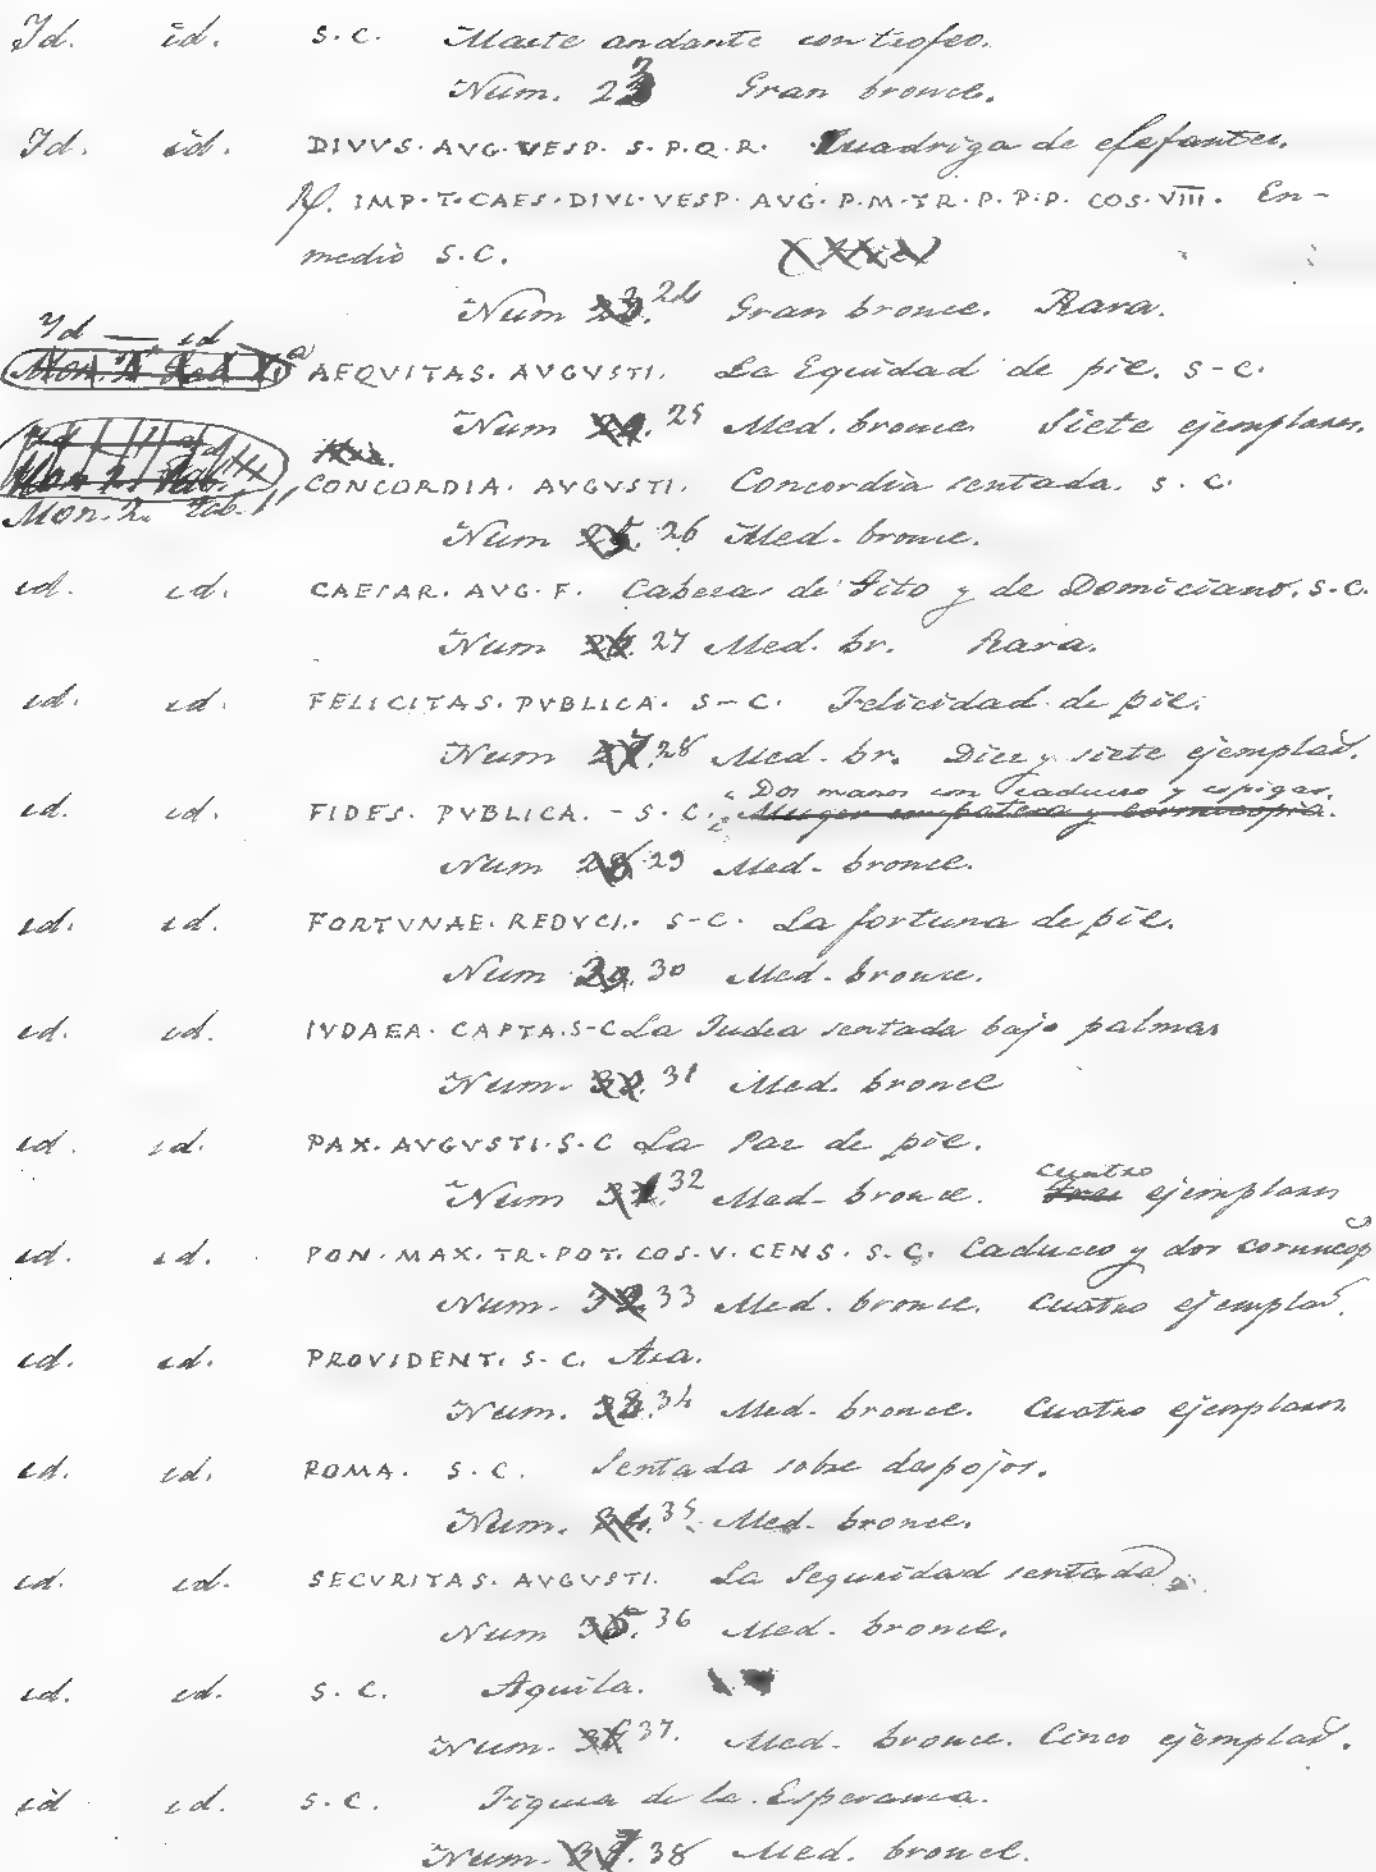 Id. id. S.C. Marte andante con trofeo.
Num. 23 Gran bronce.
Id. id. DIVVS. AVG. VESP. S. P. Q. R. Cuadriga de elefantes.
R/. IMP. T. CAES. DIVI. VESP. AVG. P. M. TR. P. P. P. COS. VIII. En-
medio S.C.
Num 24 Gran bronce. Rara.
Id — id
AEQVITAS. AVGVSTI. La Equidad de pie. S-C.
Num 25 Med. bronce Siete ejemplares.
CONCORDIA. AVGVSTI. Concordia sentada. S. C.
Mon. 2. Tab. 11
Num 26 Med. bronce.
id. id. CAESAR. AVG. F. Cabezas de Tito y de Domiciano. S.C.
Num 27 Med. br. Rara.
id. id. FELICITAS. PVBLICA. S-C. Felicidad de pie.
Num 28 Med. br. Diez y siete ejemplas.
Dos manos con caduceo y espigas.
id. id. FIDES. PVBLICA. - S. C. Muger con patera y cornucopia.
Num 28 29 Med. bronce.
id. id. FORTVNAE. REDVCI. S-C. La fortuna de pie.
Num 29. 30 Med. bronce.
id. id. IVDAEA. CAPTA. S-C La Judea sentada bajo palmas
Num. 31 Med. bronce
id. id. PAX. AVGVSTI. S. C La Paz de pie.
cuatro
Num 31. 32 Med. bronce. tres ejemplares
id. id. PON. MAX. TR. POT. COS. V. CENS. S. C. Caduceo y dos cornucop
Num. 33 Med. bronce. Cuatro ejemplas.
id. id. PROVIDENT. S. C. Ara.
Num. 34 Med. bronce. Cuatro ejemplares
id. id. ROMA. S. C. Sentada sobre despojos.
Num. 34. 35 Med. bronce.
id. id. SECVRITAS. AVGVSTI. La Seguridad sentada
Num 35. 36 Med. bronce.
id. id. S. C. Aguila.
Num. 36 37. Med. bronce. Cinco ejemplas.
id id. S. C. Figura de la Esperanza.
Num. 37. 38 Med. bronce.